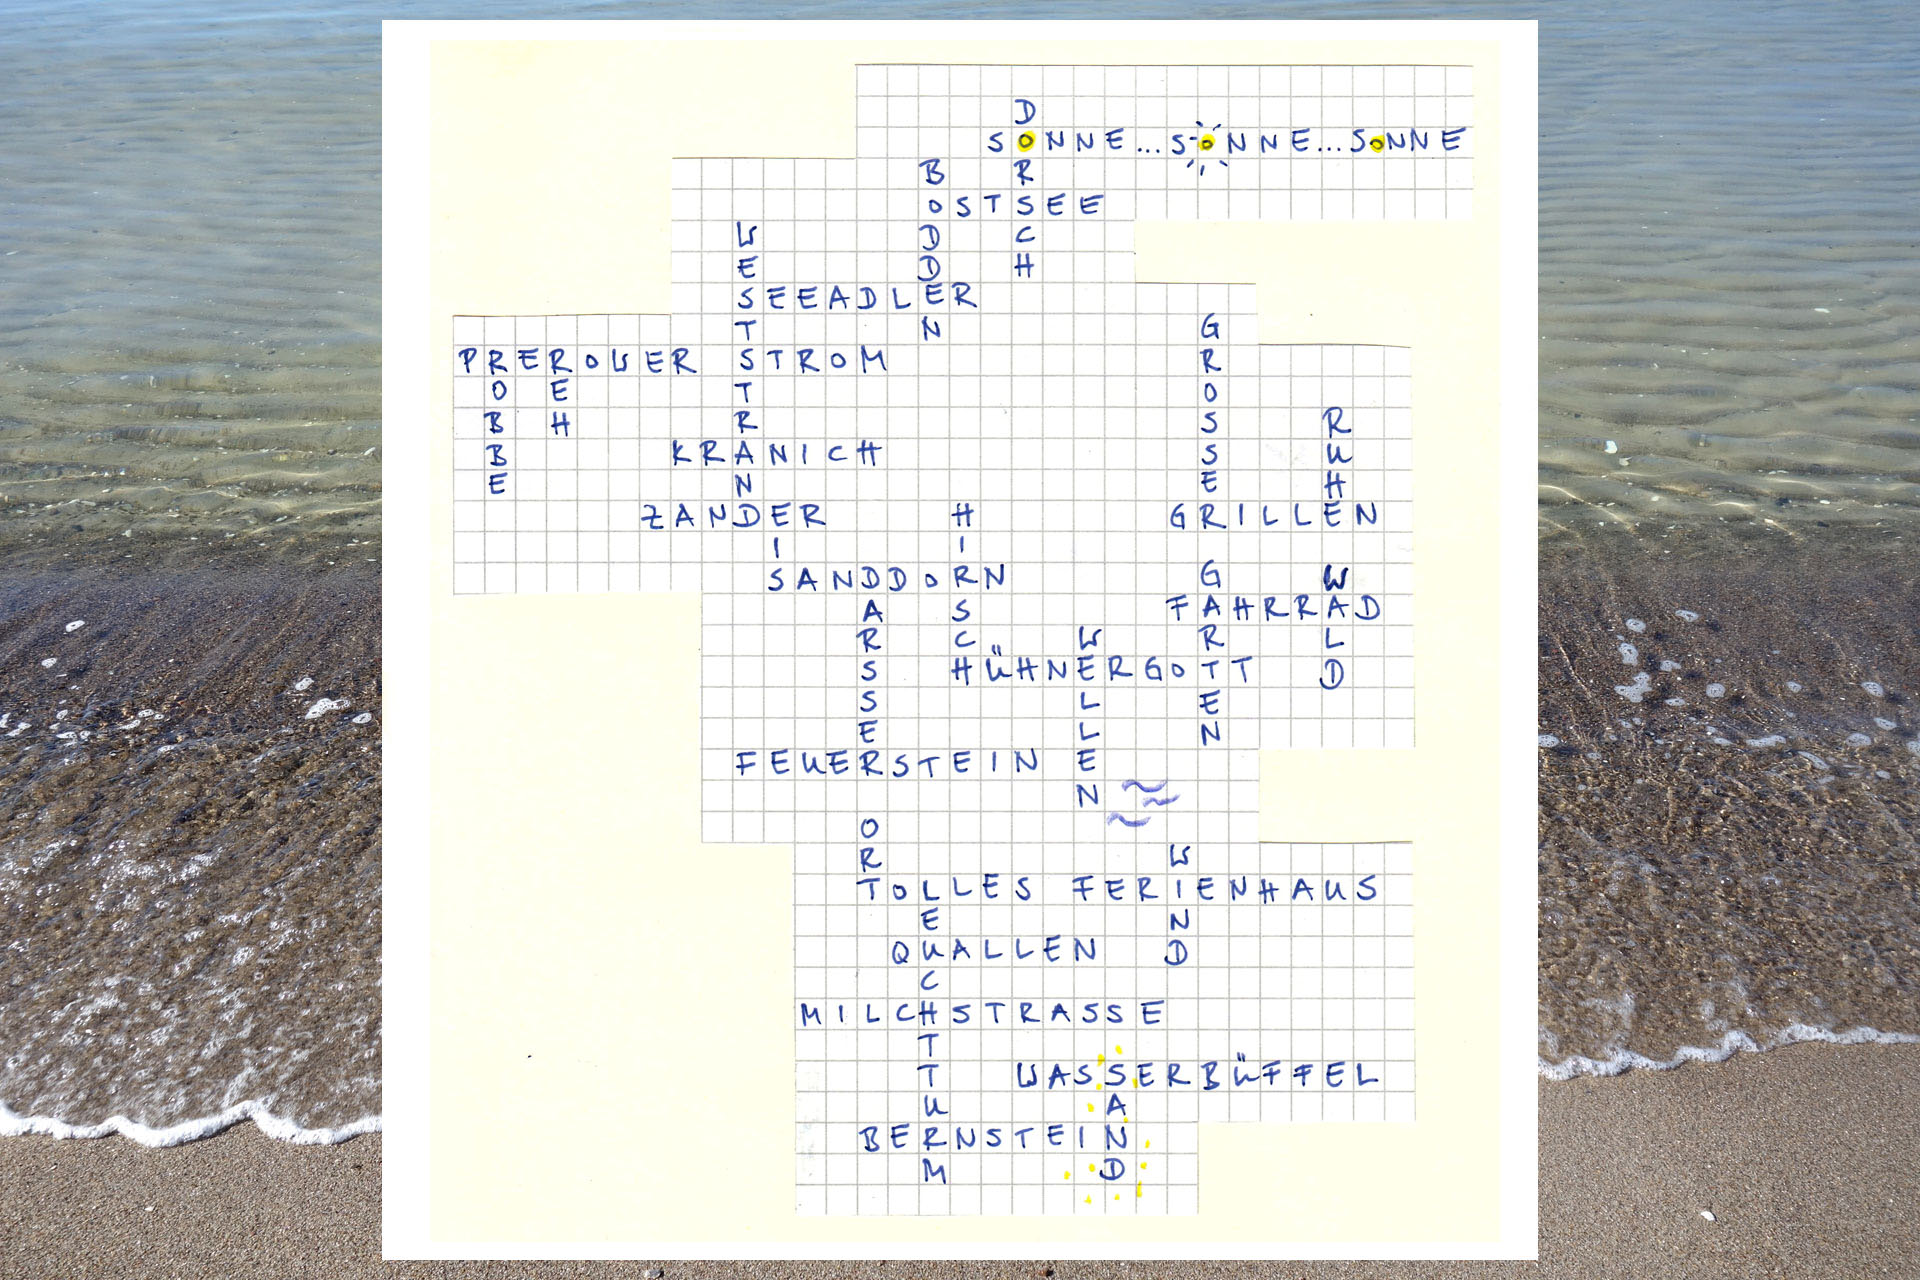 DORSCH
SONNE...SONNE...SONNE
BODDEN
OSTSEE
WESTSTRAND
SEEADLER
GROSSER GARTEN
PREROWER STROM
ROBBE
REH
RUHE WALD
KRANICH
ZANDER
EIS
HIRSCH
GRILLEN
SANDDORN
DARSSER ORT
FAHRRAD
WELLEN
HÜHNERGOTT
FEUERSTEIN
WIND
TOLLES FERIENHAUS
LEUCHTTURM
QUALLEN
MILCHSTRASSE
WASSERBÜFFEL
SAND
BERNSTEIN